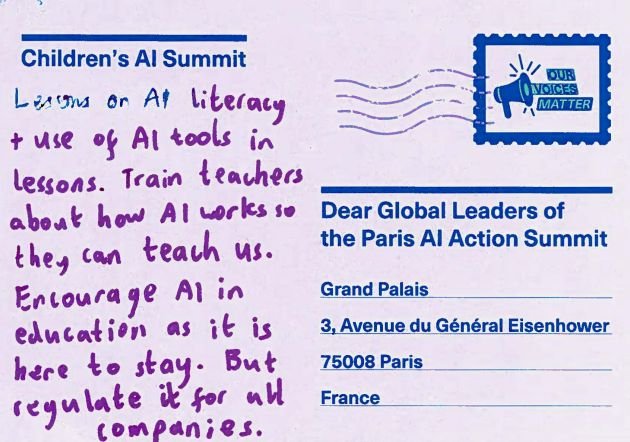 Children's AI Summit
Lessons on AI literacy
+ use of AI tools in
lessons. Train teachers
about how AI works so
they can teach us.
Encourage AI in
education as it is
here to stay. But
regulate it for all
companies.
OUR
VOICES
MATTER
Dear Global Leaders of
the Paris AI Action Summit
Grand Palais
3, Avenue du Général Eisenhower
75008 Paris
France